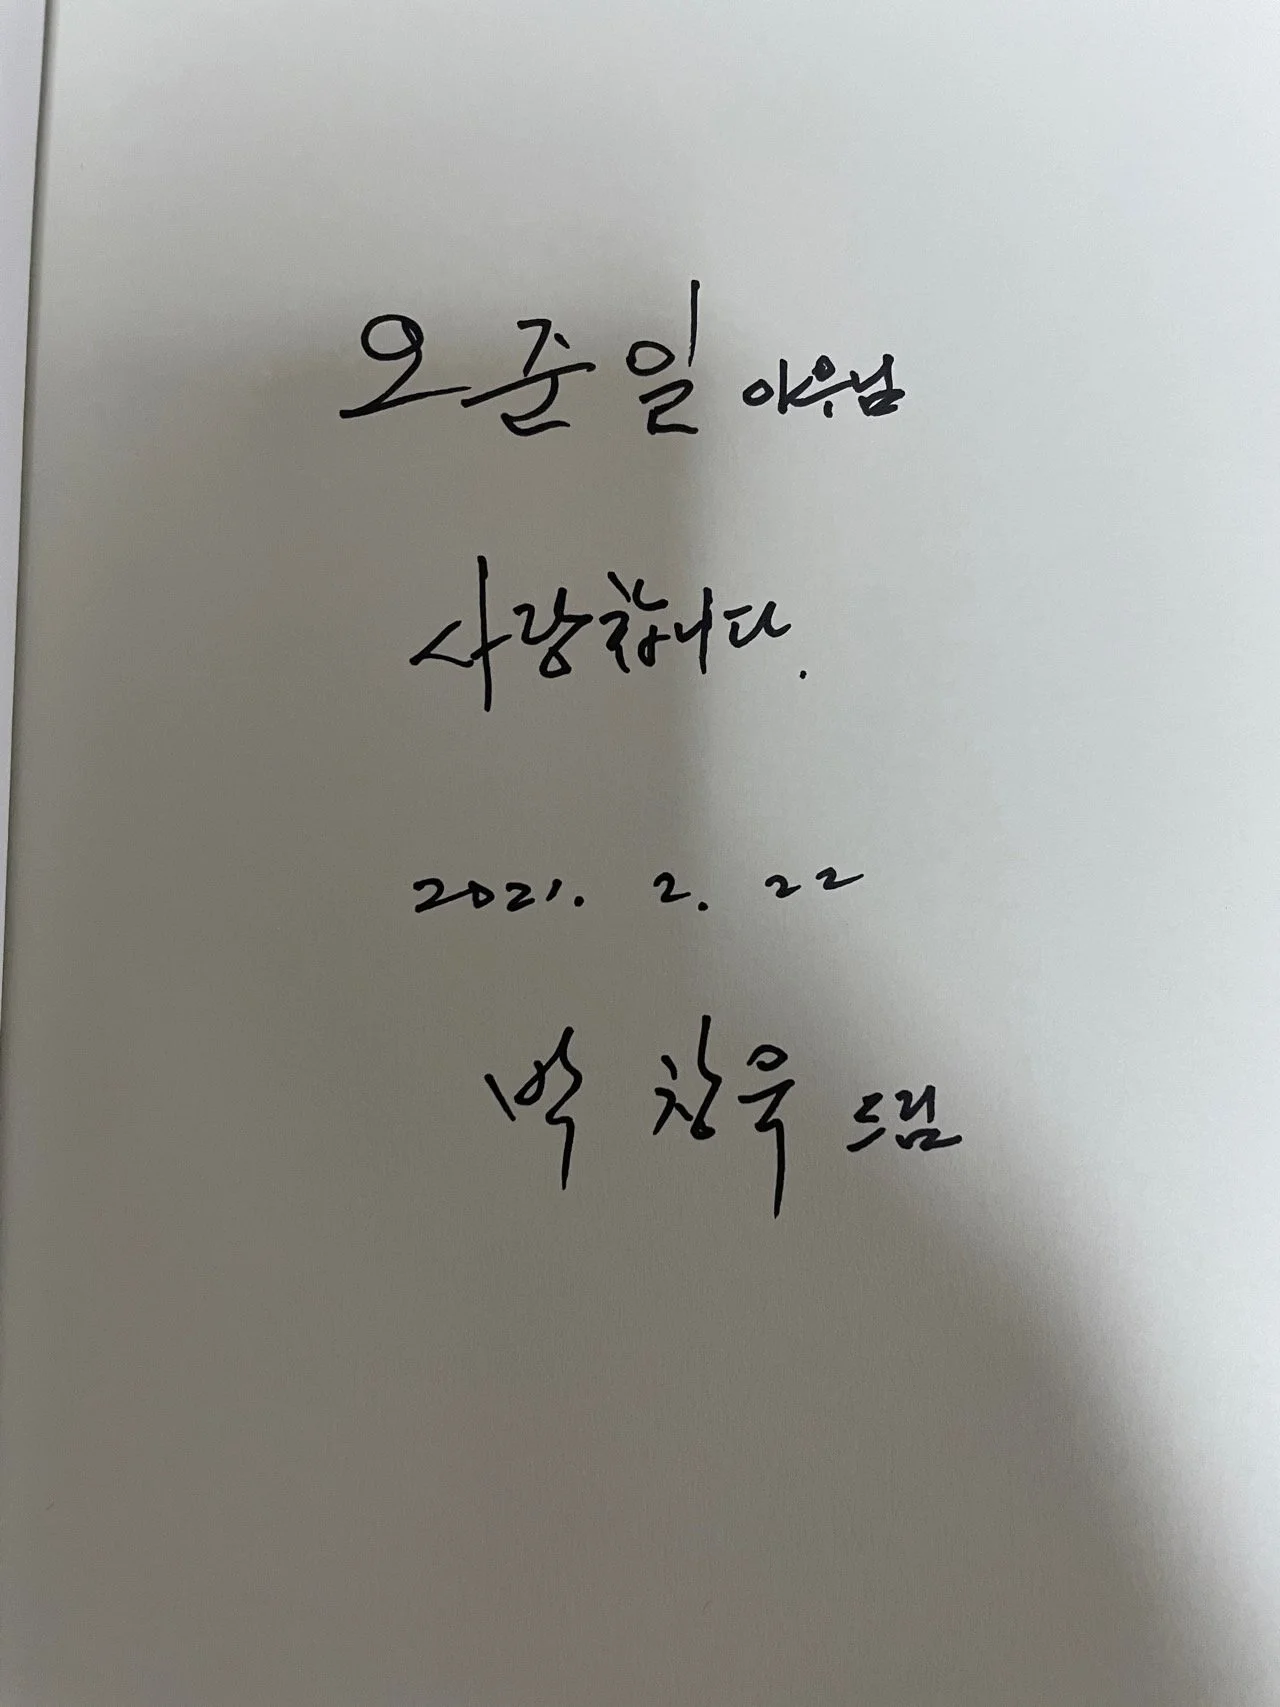 오준일 아우님
사랑합니다.
2021. 2. 22
박 창욱 드림